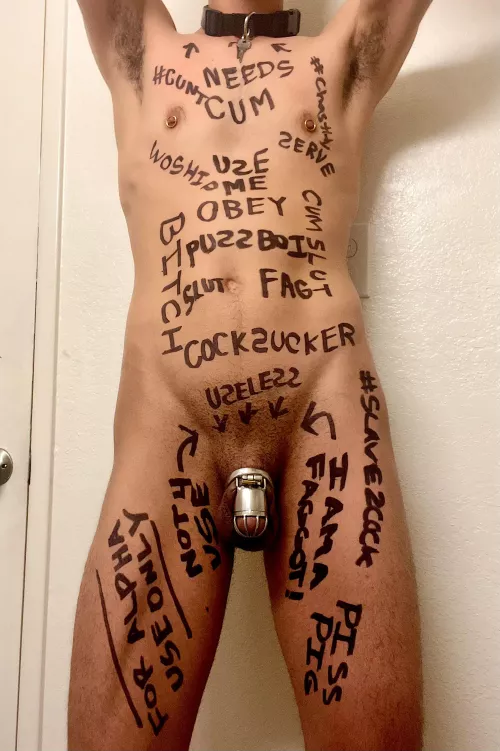 NEEDS
CUM
#CUNT
SERVE
WOSHIP
USE
ME
OBEY
CUM SLUT
BITCH
PUSSBOI
SLUT
FAGT
COCKSUCKER
USELESS
#SLAVE2COCK
NOTH
USE
I AM A
FAGGOT!
FOR ALPHA
USE ONLY
PISS
PIG